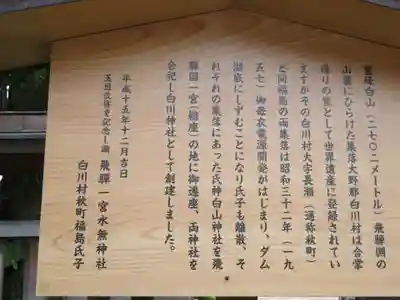 霊峰白山(二七〇二メートル)飛騨側の
山麓にひらけた集落大野郡白川村は合掌
造りの里として世界遺産に登録されてい
ますがその白川村大字長瀬(通称秋町)
と同福島の両集落は昭和三十二年(一九
五七)御母衣電源開発がはじまり、ダム
湖底にしずむことになり氏子も離散、そ
れぞれの集落にあった氏神白山神社を飛
騨国一宮(権座)の地に御遷座、両神社を
合祀し白川神社として創建しました。
平成十五年十二月吉日
玉垣改修を記念し識 飛騨一宮水無神社
白川村秋町福島氏子